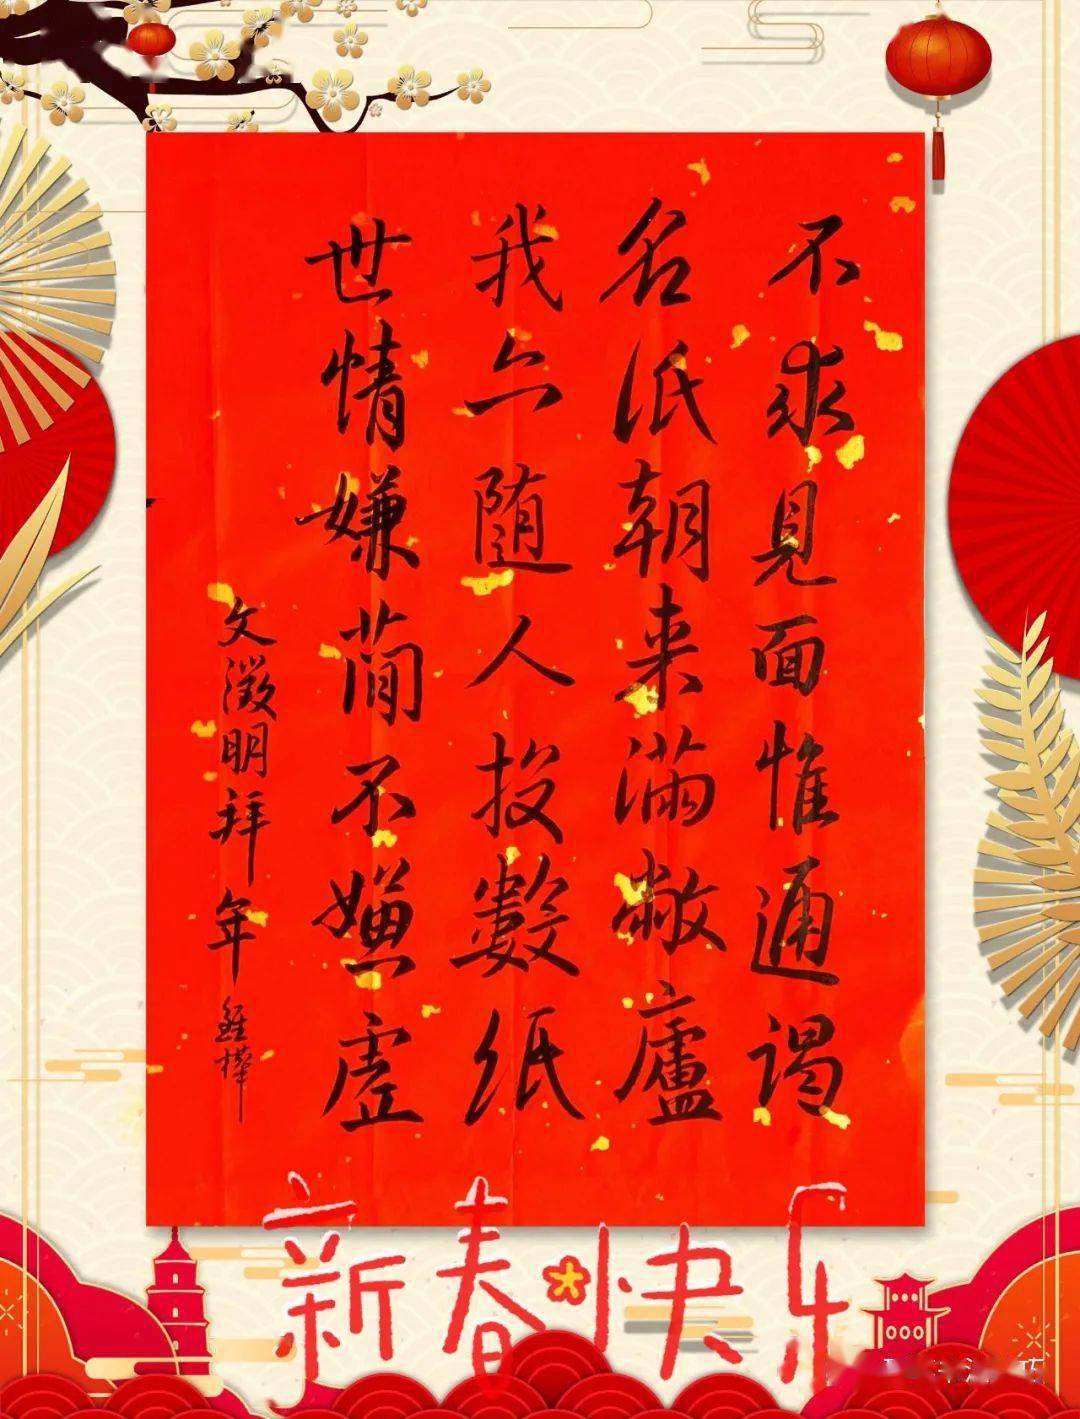 不求見面惟通谒
名紙朝来滿敝廬
我亦随人投數紙
世情嫌簡不嫌虚
文徵明拜年
新春快乐